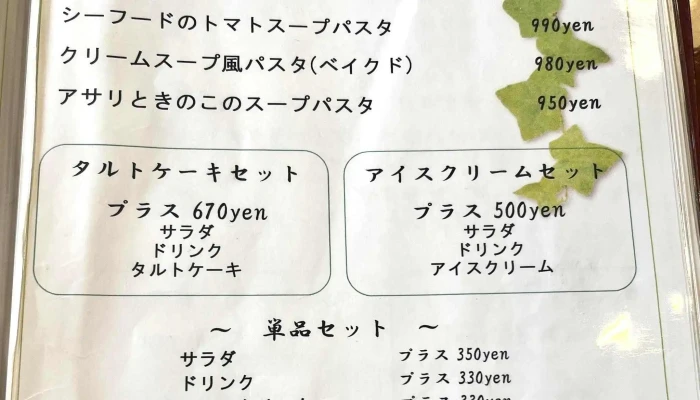 シーフードのトマトスープパスタ 990yen
クリームスープ風パスタ(ベイクド) 980yen
アサリときのこのスープパスタ 950yen
タルトケーキセット
プラス 670yen
サラダ
ドリンク
タルトケーキ
アイスクリームセット
プラス 500yen
サラダ
ドリンク
アイスクリーム
～ 単品セット ～
サラダ プラス 350yen
ドリンク プラス 330yen
プラス 330yen